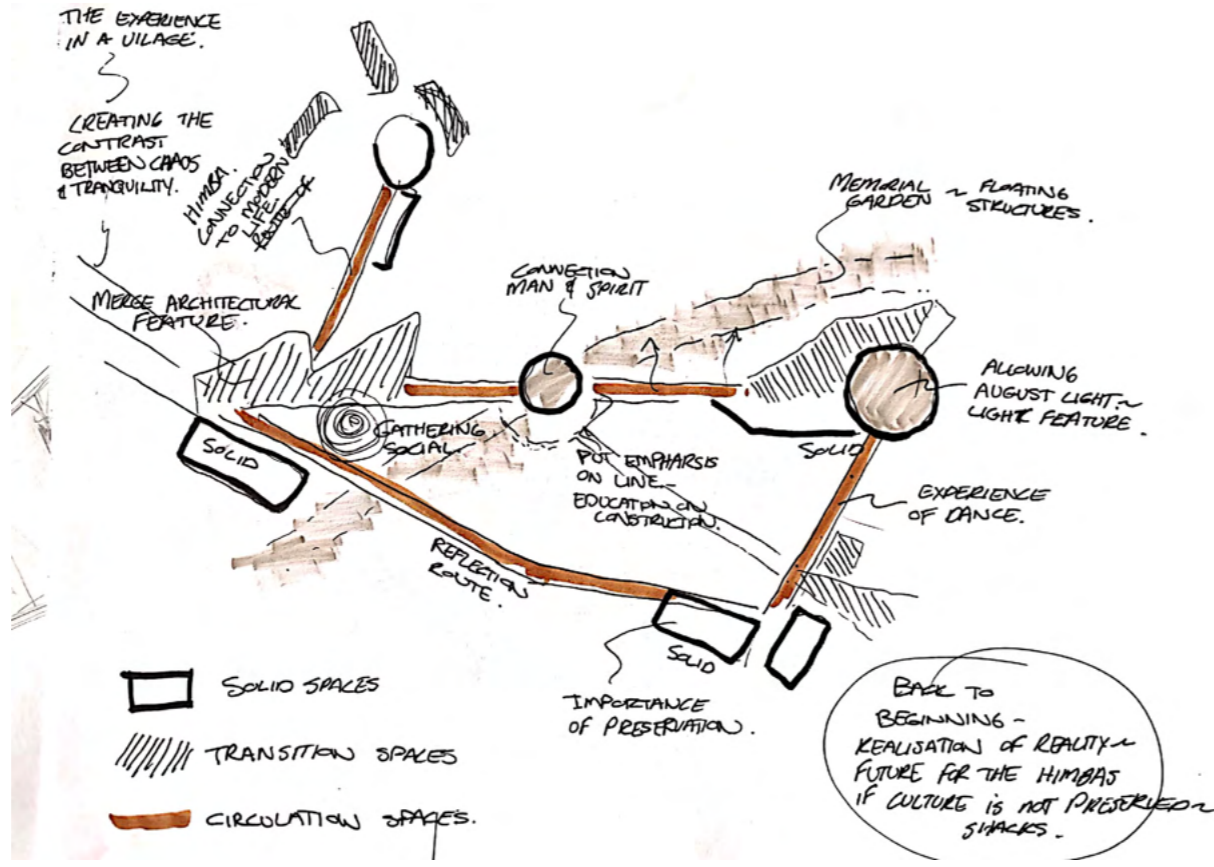 THE EXPERIENCE
IN A VILAGE.
CREATING THE
CONTRAST
BETWEEN CHAOS
& TRANQUILITY.
HIMBA.
CONNECTION
TO MODERN
LIFE.
ROUTE OF
MERGE ARCHITECTURAL
FEATURE.
CONNECTION
MAN & SPIRIT
MEMORIAL ~ FLOATING
GARDEN STRUCTURES.
ALLOWING
AUGUST LIGHT ~
LIGHT FEATURE.
SOLID
GATHERING
SOCIAL.
PUT EMPHARSIS
ON LINE -
EDUCATION ON
CONSTRUCTION.
SOLID
EXPERIENCE
OF DANCE.
REFLECTION
ROUTE.
SOLID
IMPORTANCE
OF PRESERVATION.
SOLID SPACES
TRANSITION SPACES
CIRCULATION SPACES.
BACK TO
BEGINNING ~
REALISATION OF REALITY ~
FUTURE FOR THE HIMBAS
IF CULTURE IS NOT PRESERVED ~
SHACKS.